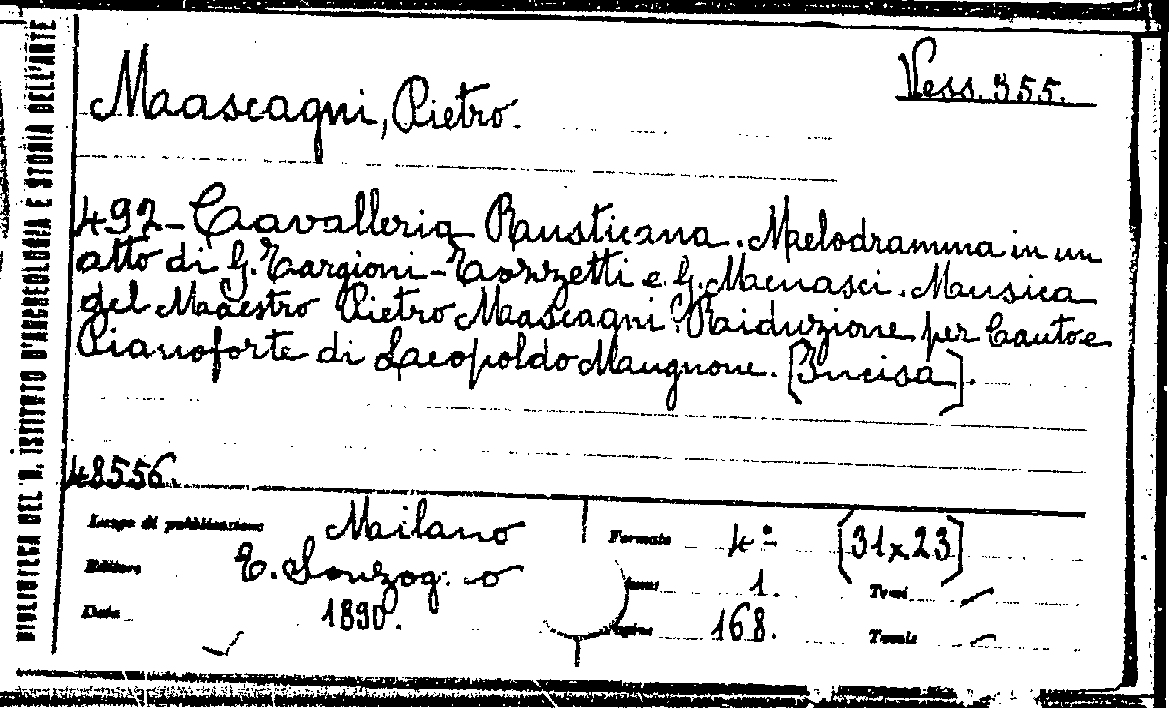 BIBLIOTECA DEL R. ISTITUTO D'ARCHEOLOGIA E STORIA DELL'ARTE
Vess. 355.
Mascagni, Pietro.
492 - Cavalleria Rusticana. Melodramma in un
atto di G. Targioni-Tozzetti e G. Menasci. Musica
del Maestro Pietro Mascagni. Riduzione per Canto e
Pianoforte di Leopoldo Mugnone. [Incisa].
48556.
Luogo di pubblicazione Milano
Editore E. Sonzogno
Data 1890.
Formato 4° [31x23]
1. Tomi
168. Tavole